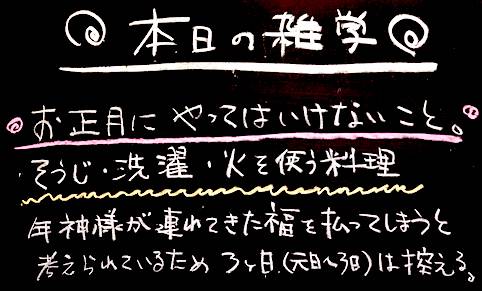 本日の雑学
お正月に やってはいけないこと。
そうじ・洗濯・火を使う料理
年神様が連れてきた福を払ってしまうと
考えられているため 3ヶ日(元日〜3日)は控える。